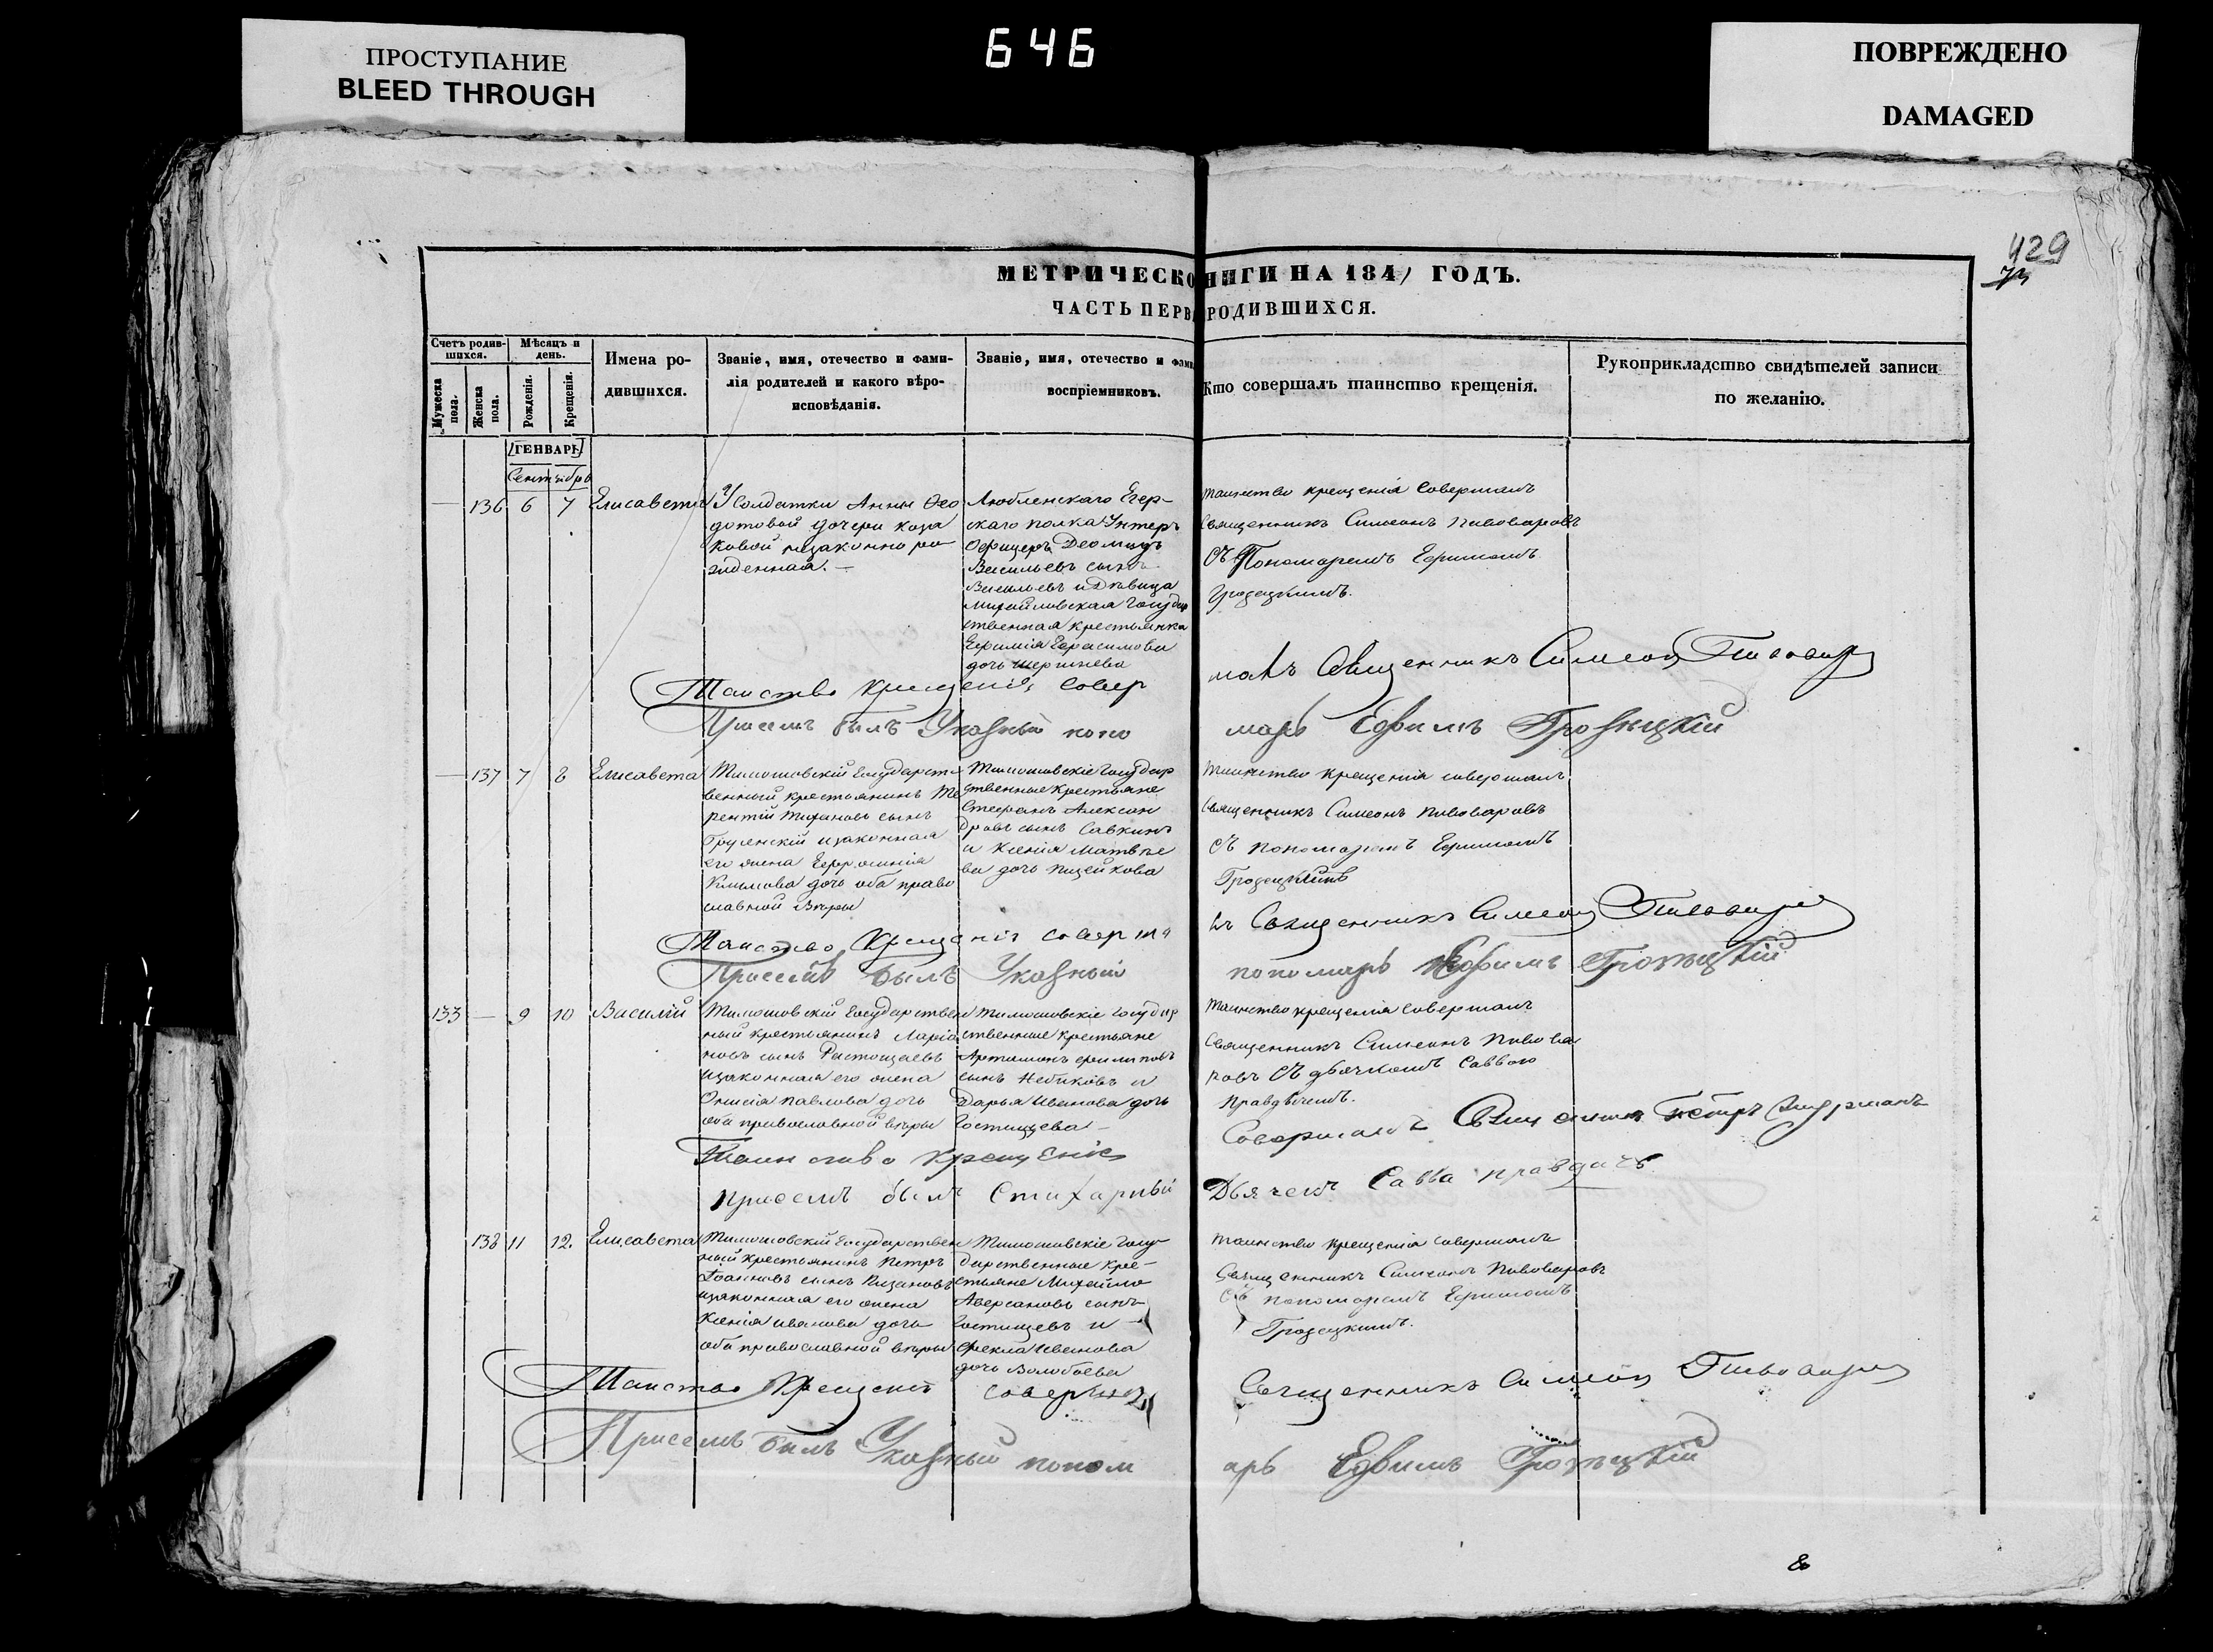 ПРОСТУПАНИЕ
BLEED THROUGH
646
ПОВРЕЖДЕНО
DAMAGED
429
МЕТРИЧЕСКО НИГИ НА 1841 ГОДЪ.
ЧАСТЬ ПЕРВА РОДИВШИХСЯ.
Счетъ родив-
шихся.
Мужеска
пола.
Женска
пола.
Мѣсяцъ и
день.
Рожденія.
Крещенія.
Имена ро-
дившихся.
Званіе, имя, отечество и фами-
лія родителей и какого вѣро-
исповѣданія.
Званіе, имя, отечество и фами
воспріемниковъ.
Кто совершалъ таинство крещенія.
Рукоприкладство свидѣтелей записи
по желанію.
ГЕНВАРЬ
Сентябрь
— 136 6 7 Елисавета
У Солдатки Анны Ѳео
дотовой дочери Коза
ковой незаконно ро
жденная. —
Люблинскаго Егер-
скаго полка Унтеръ
Офицеръ Деомидъ
Васильевъ сынъ
Васильевъ и Дѣвица
Михайловская Государ
ственная крестьянка
Ефимія Герасимова
дочь
Таинство крещенія совершалъ
Священникъ Симеонъ Пивоваровъ
Съ Пономаремъ Ефимомъ
Гродецкимъ.
Таинство Крещенія Совер
шалъ Священникъ Симеонъ Пивоваръ
При семъ былъ Указный поно
марь Ефимъ Гродецкій
— 137 7 8 Елисавета
Тимошовскій Государст
венный крестьянинъ Те
рентій сынъ
и законная
его жена Ефросинія
Климова дочь оба право
славной вѣры
Тимошовскіе Государ
ственные Крестьяне
Стефанъ Алексан
дровъ сынъ Савкинъ
и Ксенія Матвѣе
ва дочь
Таинство крещенія совершалъ
Священникъ Симеонъ Пивоваровъ
съ пономаремъ Ефимомъ
Гродецкимъ
Таинство Крещенія соверша
лъ Священникъ Симеонъ Пивоваръ
При семъ былъ Указный
пономарь Ефимъ Гродецкій
133 — 9 10 Василій
Тимошовскій Государствен
ный крестьянинъ Ларіо
новъ сынъ
и законная его жена
Онисія Павлова дочь
оба православной вѣры
Тимошовскіе Государ
ственные крестьяне
Артимонъ Филиповъ
сынъ и
Дарья Иванова дочь
Гостищева —
Таинство крещенія совершалъ
Священникъ Симеонъ Пивова
ровъ съ дьячкомъ Саввою
Правдичемъ.
Таинство Крещенія
Совершалъ Священникъ Петръ
При семъ былъ Стихарный
Дьячекъ Савва Правдичъ
138 11 12. Елисавета
Тимошовскій Государствен
ный крестьянинъ Петръ
Іоанновъ сынъ
и законная его жена
Ксенія Иванова дочь
оба православной вѣры
Тимошовскіе Госу-
дарственные Кре-
стьяне Михайло
сынъ
Гостищевъ и —
Фекла Иванова
дочь
Таинство крещенія совершалъ
Священникъ Симеонъ Пивоваровъ
съ пономаремъ Ефимомъ
Гродецкимъ.
Таинство Крещенія совершилъ
Священникъ Симеонъ Пивоваръ
При семъ былъ Указный поном
арь Ефимъ Гродецкій